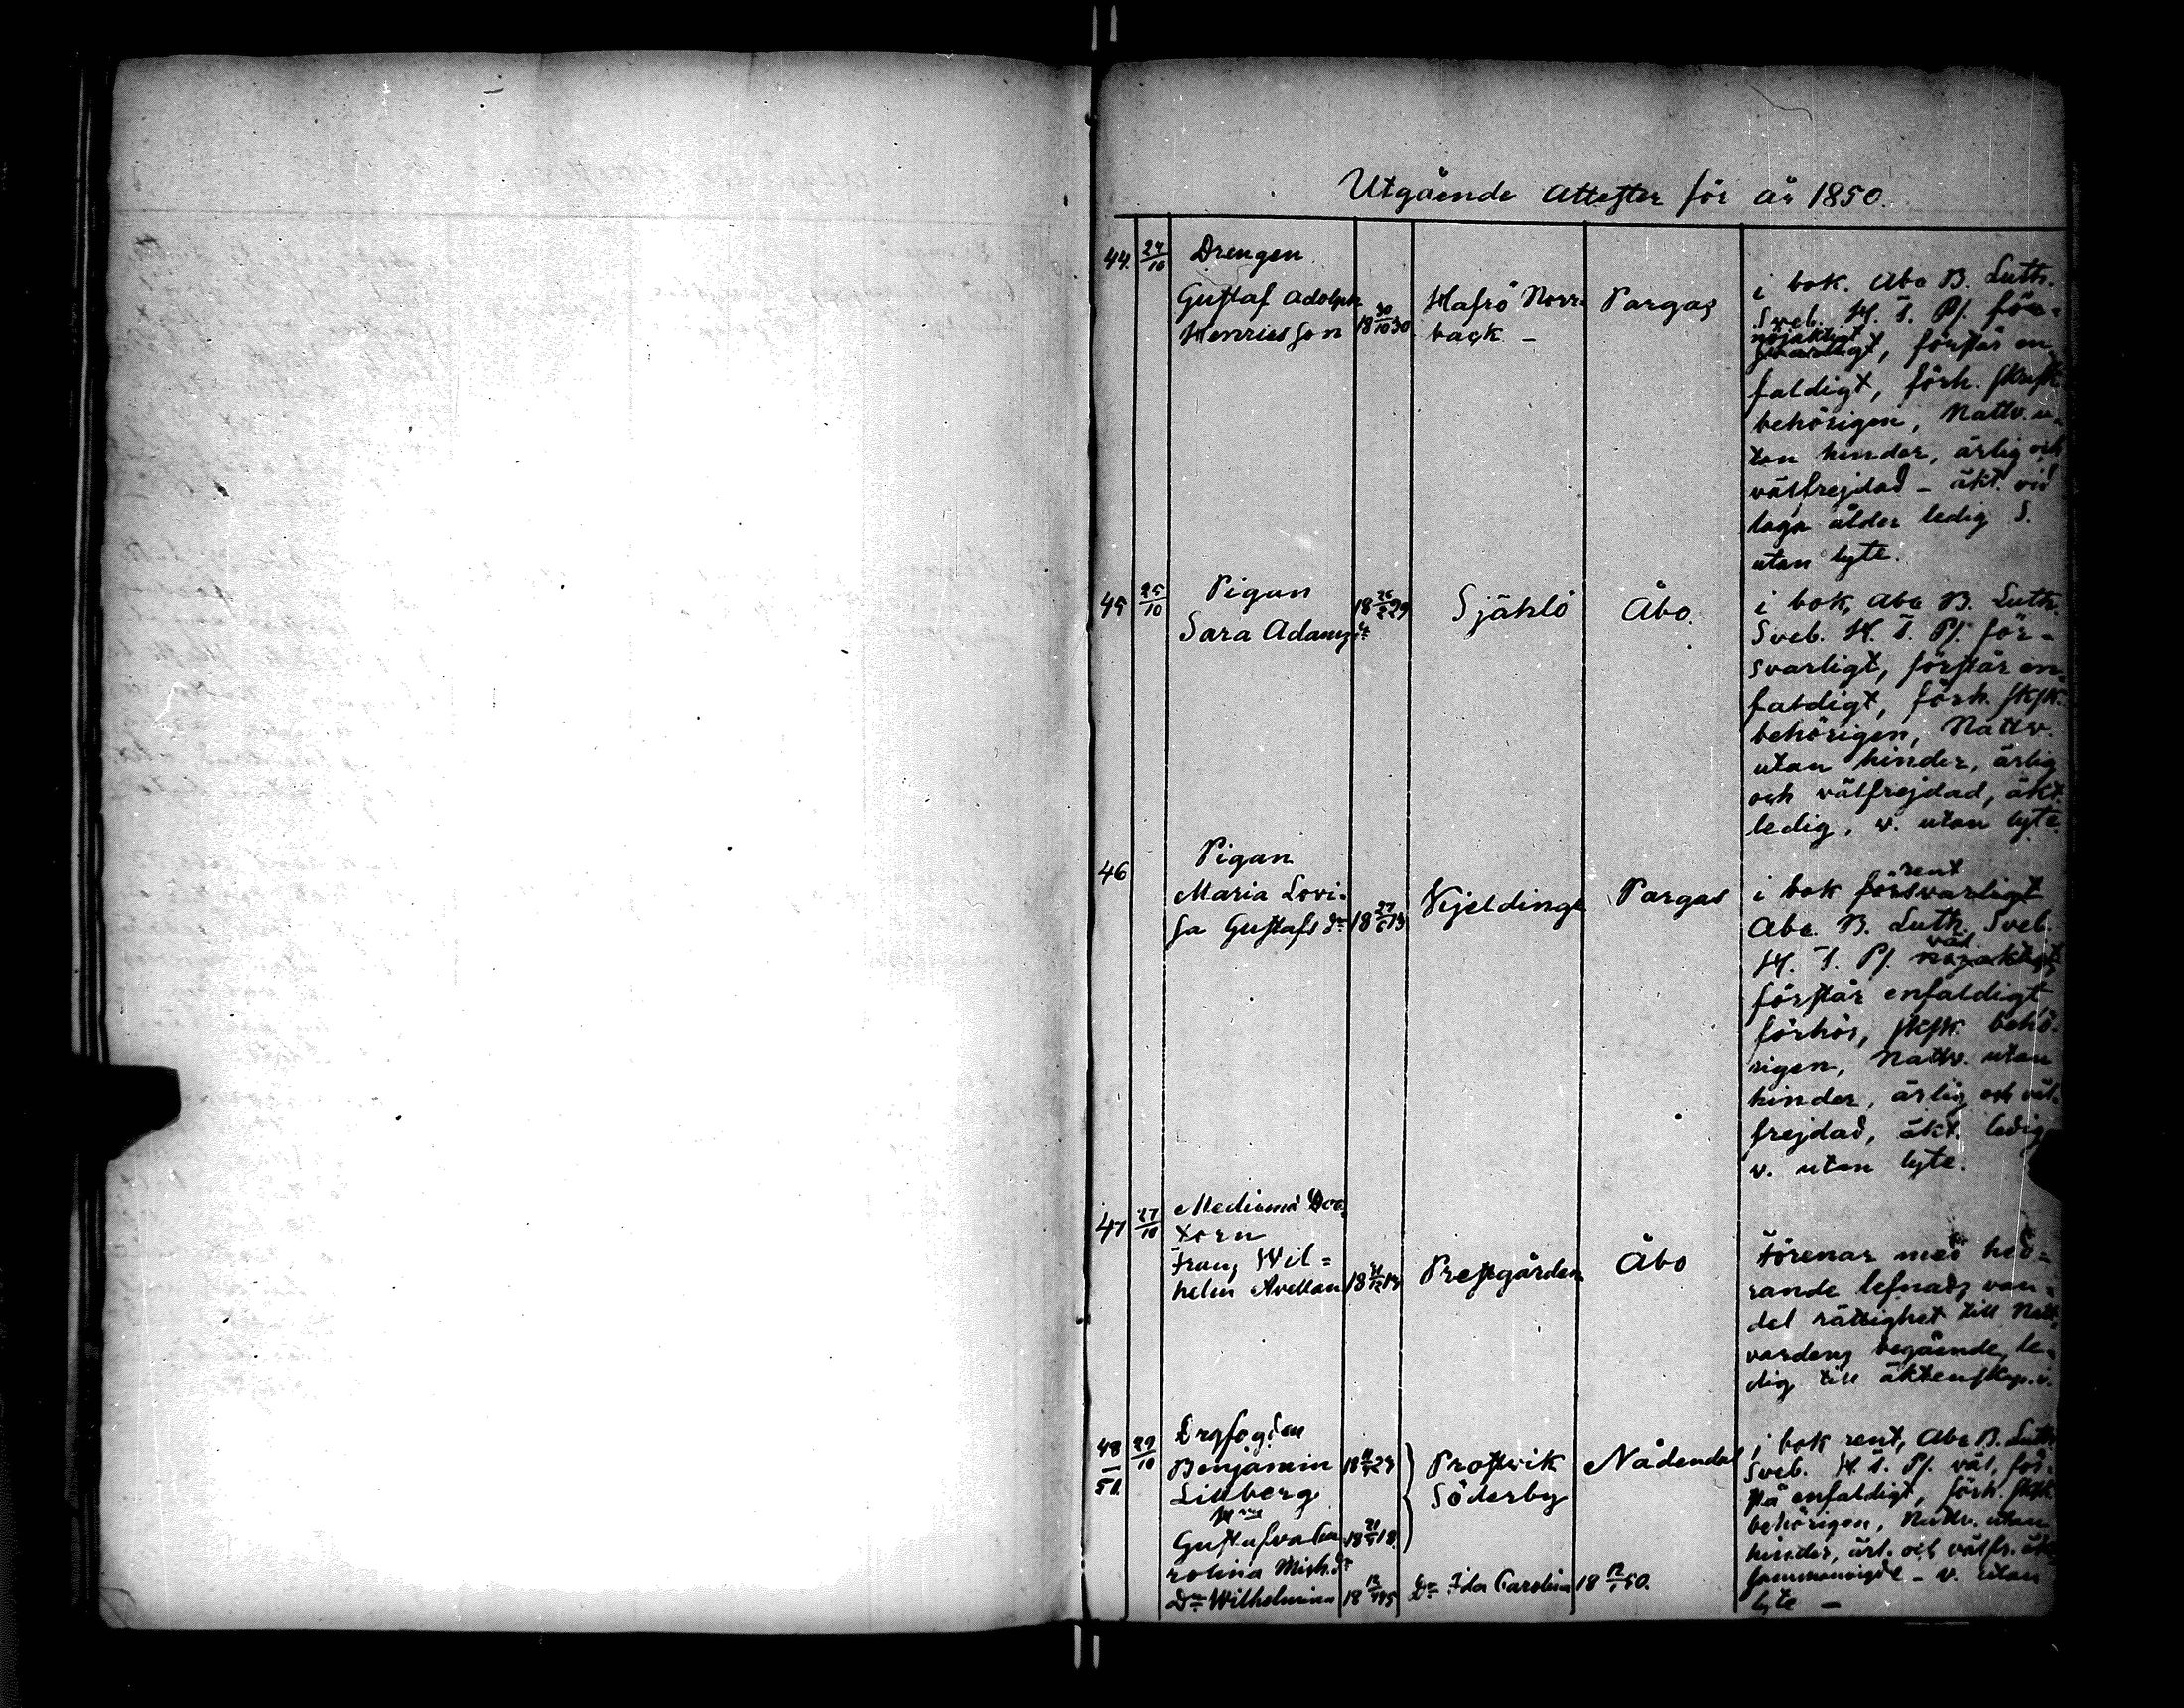 Utgående Attester för år 1850.
44. 24/10 Drengen
Gustaf Adolph
Henricsson 18 30/10 30
Hafrö Norr
back –
Pargas
i bok. Abc B. Luth.
Sveb. H. T. Ps. för-
nöjaktigt
svarligt, förstår en
faldigt, förh. skrift
behörigen, Nattv. u-
tan hinder, ärlig och
välfrejdad – äkt. vid
laga ålder ledig S.
utan lyte.
45 25/10 Pigan
Sara Adamsdr
Själö
Åbo.
i bok, Abc B. Luth.
Sveb. H. T. Ps. för-
svarligt, förstår en-
faldigt, förh. skfk.
behörigen, Nattv.
utan hinder, ärlig
och välfrejdad, äkt.
ledig, v. utan lyte.
46 Pigan
Maria Lovi-
sa Gustafs dr
Kjeldinge
Pargas
rent
i bok försvarligt
Abc. B. Luth. Sveb.
väl
H. T. Ps. nöjaktigt
förstår enfaldigt
förhör, skfk. behö-
rigen, Nattv. utan
hinder, ärlig och väl-
frejdad, äkt. ledig
v. utan lyte.
47 27/10 Medicinæ Doc
torn
Frans Wil=
helm Avellan
Prestgården
Åbo
Förenar med hed=
rande lefnads van=
del rättighet till Natt-
vardens begående, le-
dig till äktenskap. v.
48 – 51. 29/10
Benjamin
Lillberg
Hus
Gustafva Ca
rolina Mich. dr
Dr Wilhelmina
Prostvik
Söderby
Nådendal
Dr Ida Carolina
i bok rent, Abc B. Luth
Sveb. H. T. Ps. väl, för-
stå enfaldigt, förh. skfk
behörigen, Nattv. utan
hinder, ärl. och välfr. äkt
sammanvigde – v. utan
lyte –